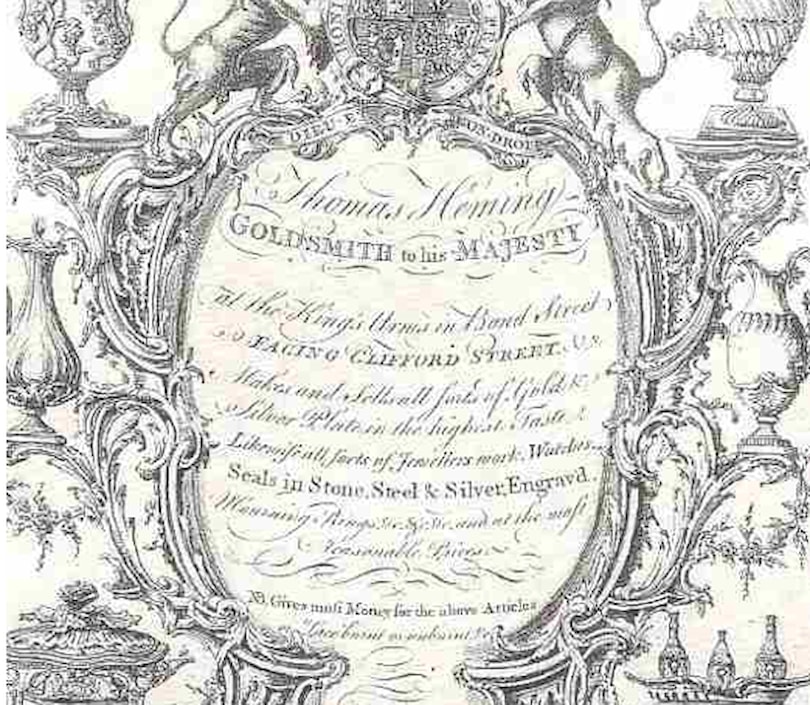 HONI
DIEU ET MON DROIT
Thomas Heming
GOLDSMITH to his MAJESTY
at the King's Arms in Bond Street
FACING CLIFFORD STREET.
Makes and Sells all sorts of Gold &
Silver Plate in the highest Taste
Likewise all sorts of Jewellers work, Watches
Seals in Stone, Steel & Silver, Engrav'd.
Mourning Rings &c. &c. &c. and at the most
Reasonable Prices
NB. Gives most Money for the above Articles
or Lace burnt or unburnt